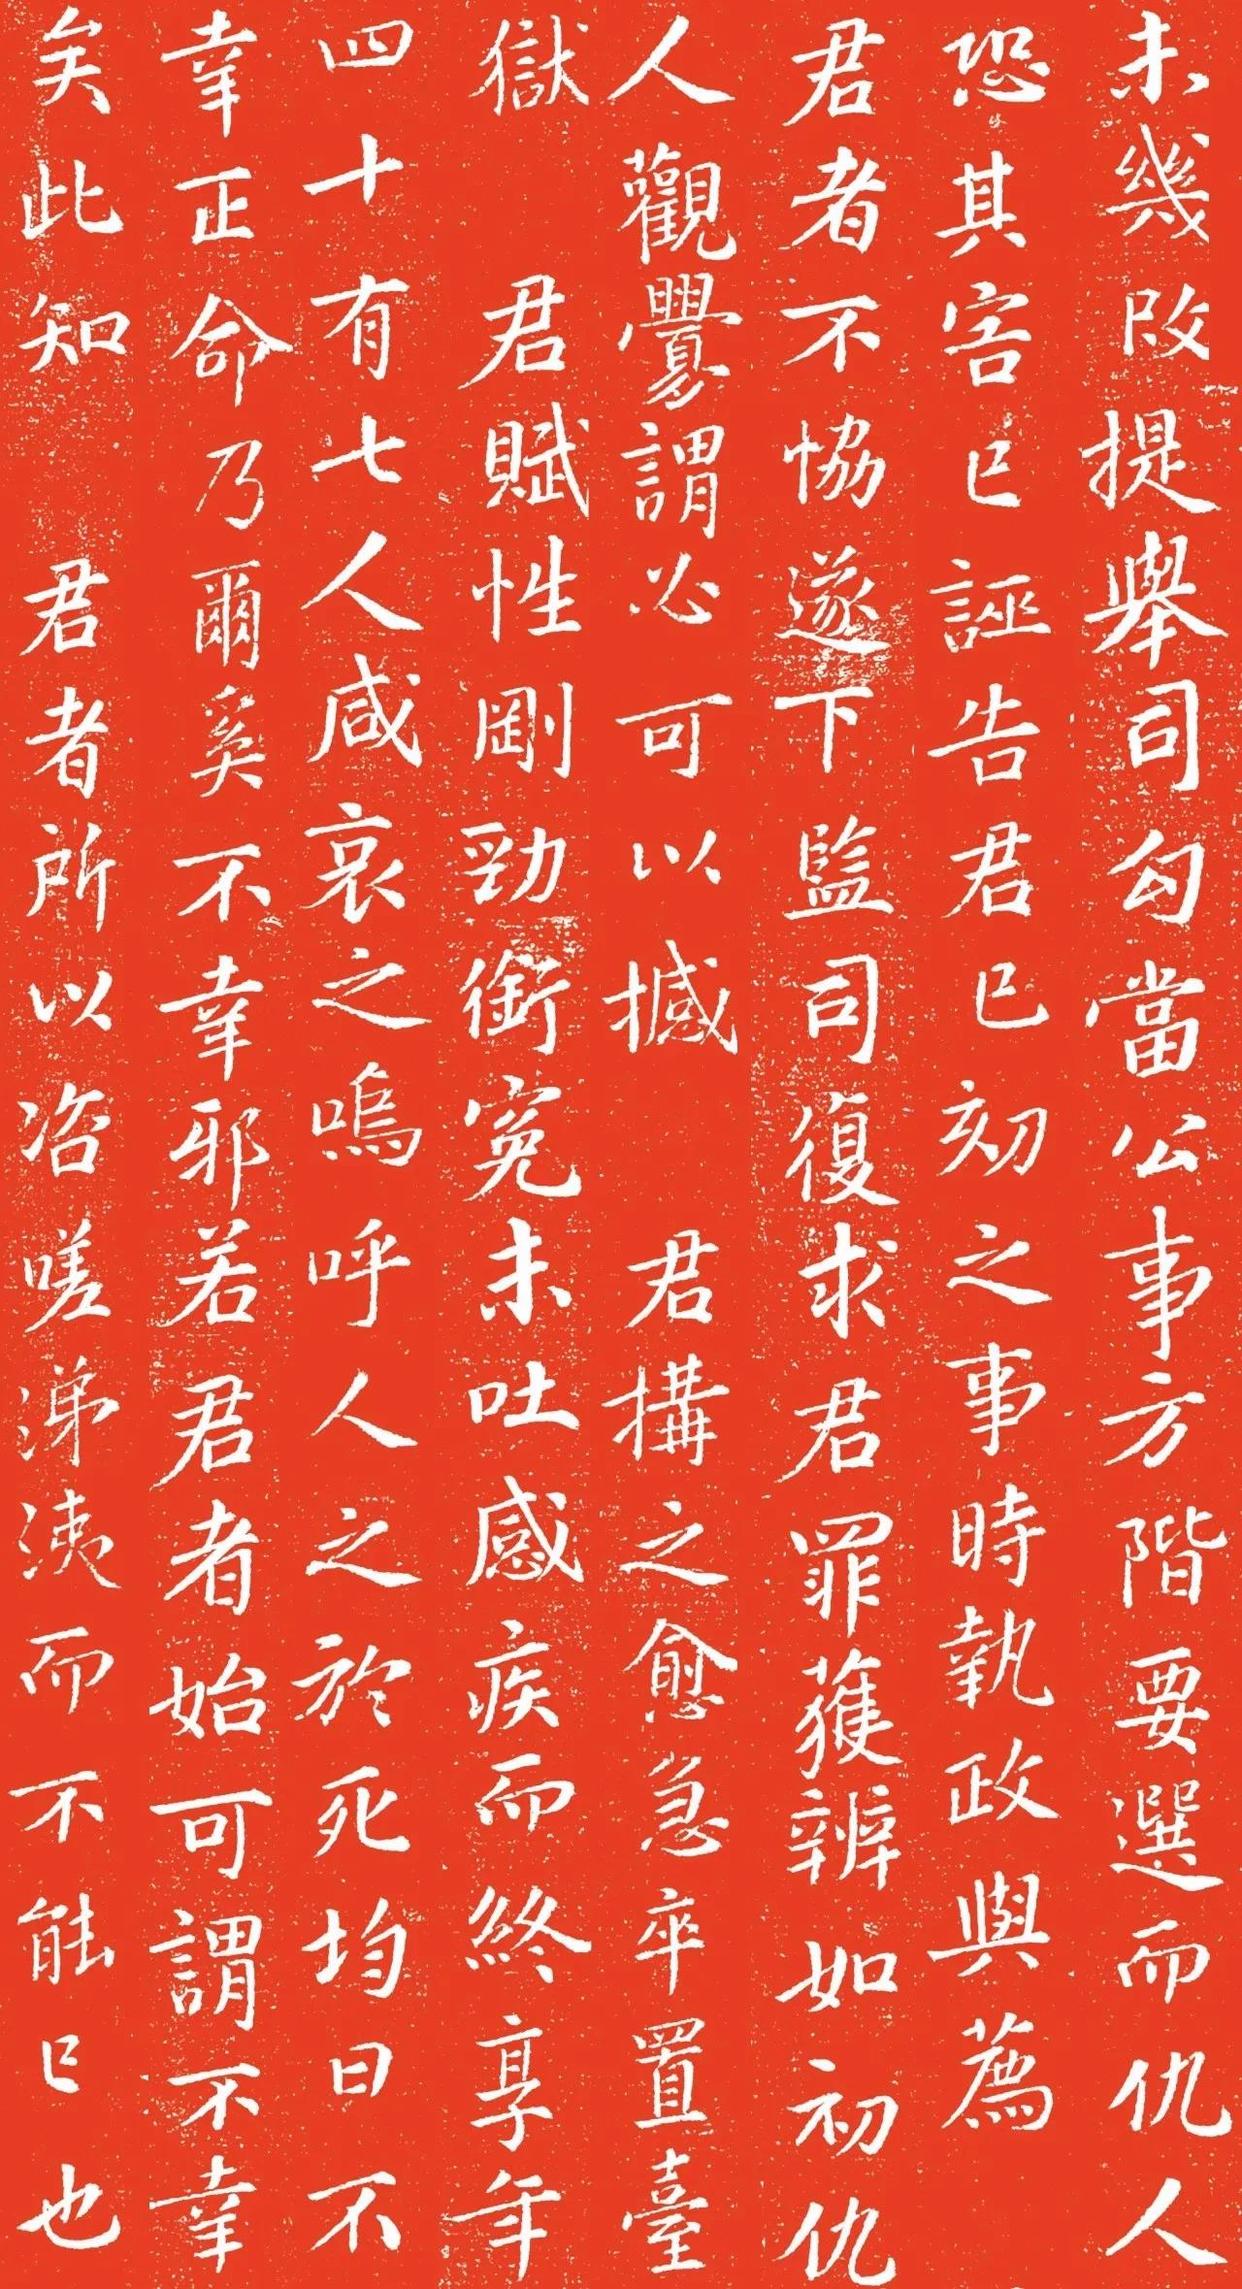 未幾改提舉司勾當公事方階要選而仇人
恐其害已誣告君已刻之事時執政與薦
君者不恊遂下監司復求君罪獲辨如初仇
人觀釁謂必可以撼君搆之愈急卒置臺
獄君賦性剛勁銜冤未吐感疾而終享年
四十有七人咸哀之嗚呼人之於死均曰不
幸正命乃爾奚不幸邪若君者始可謂不幸
矣此知君者所以咨嗟涕洟而不能已也